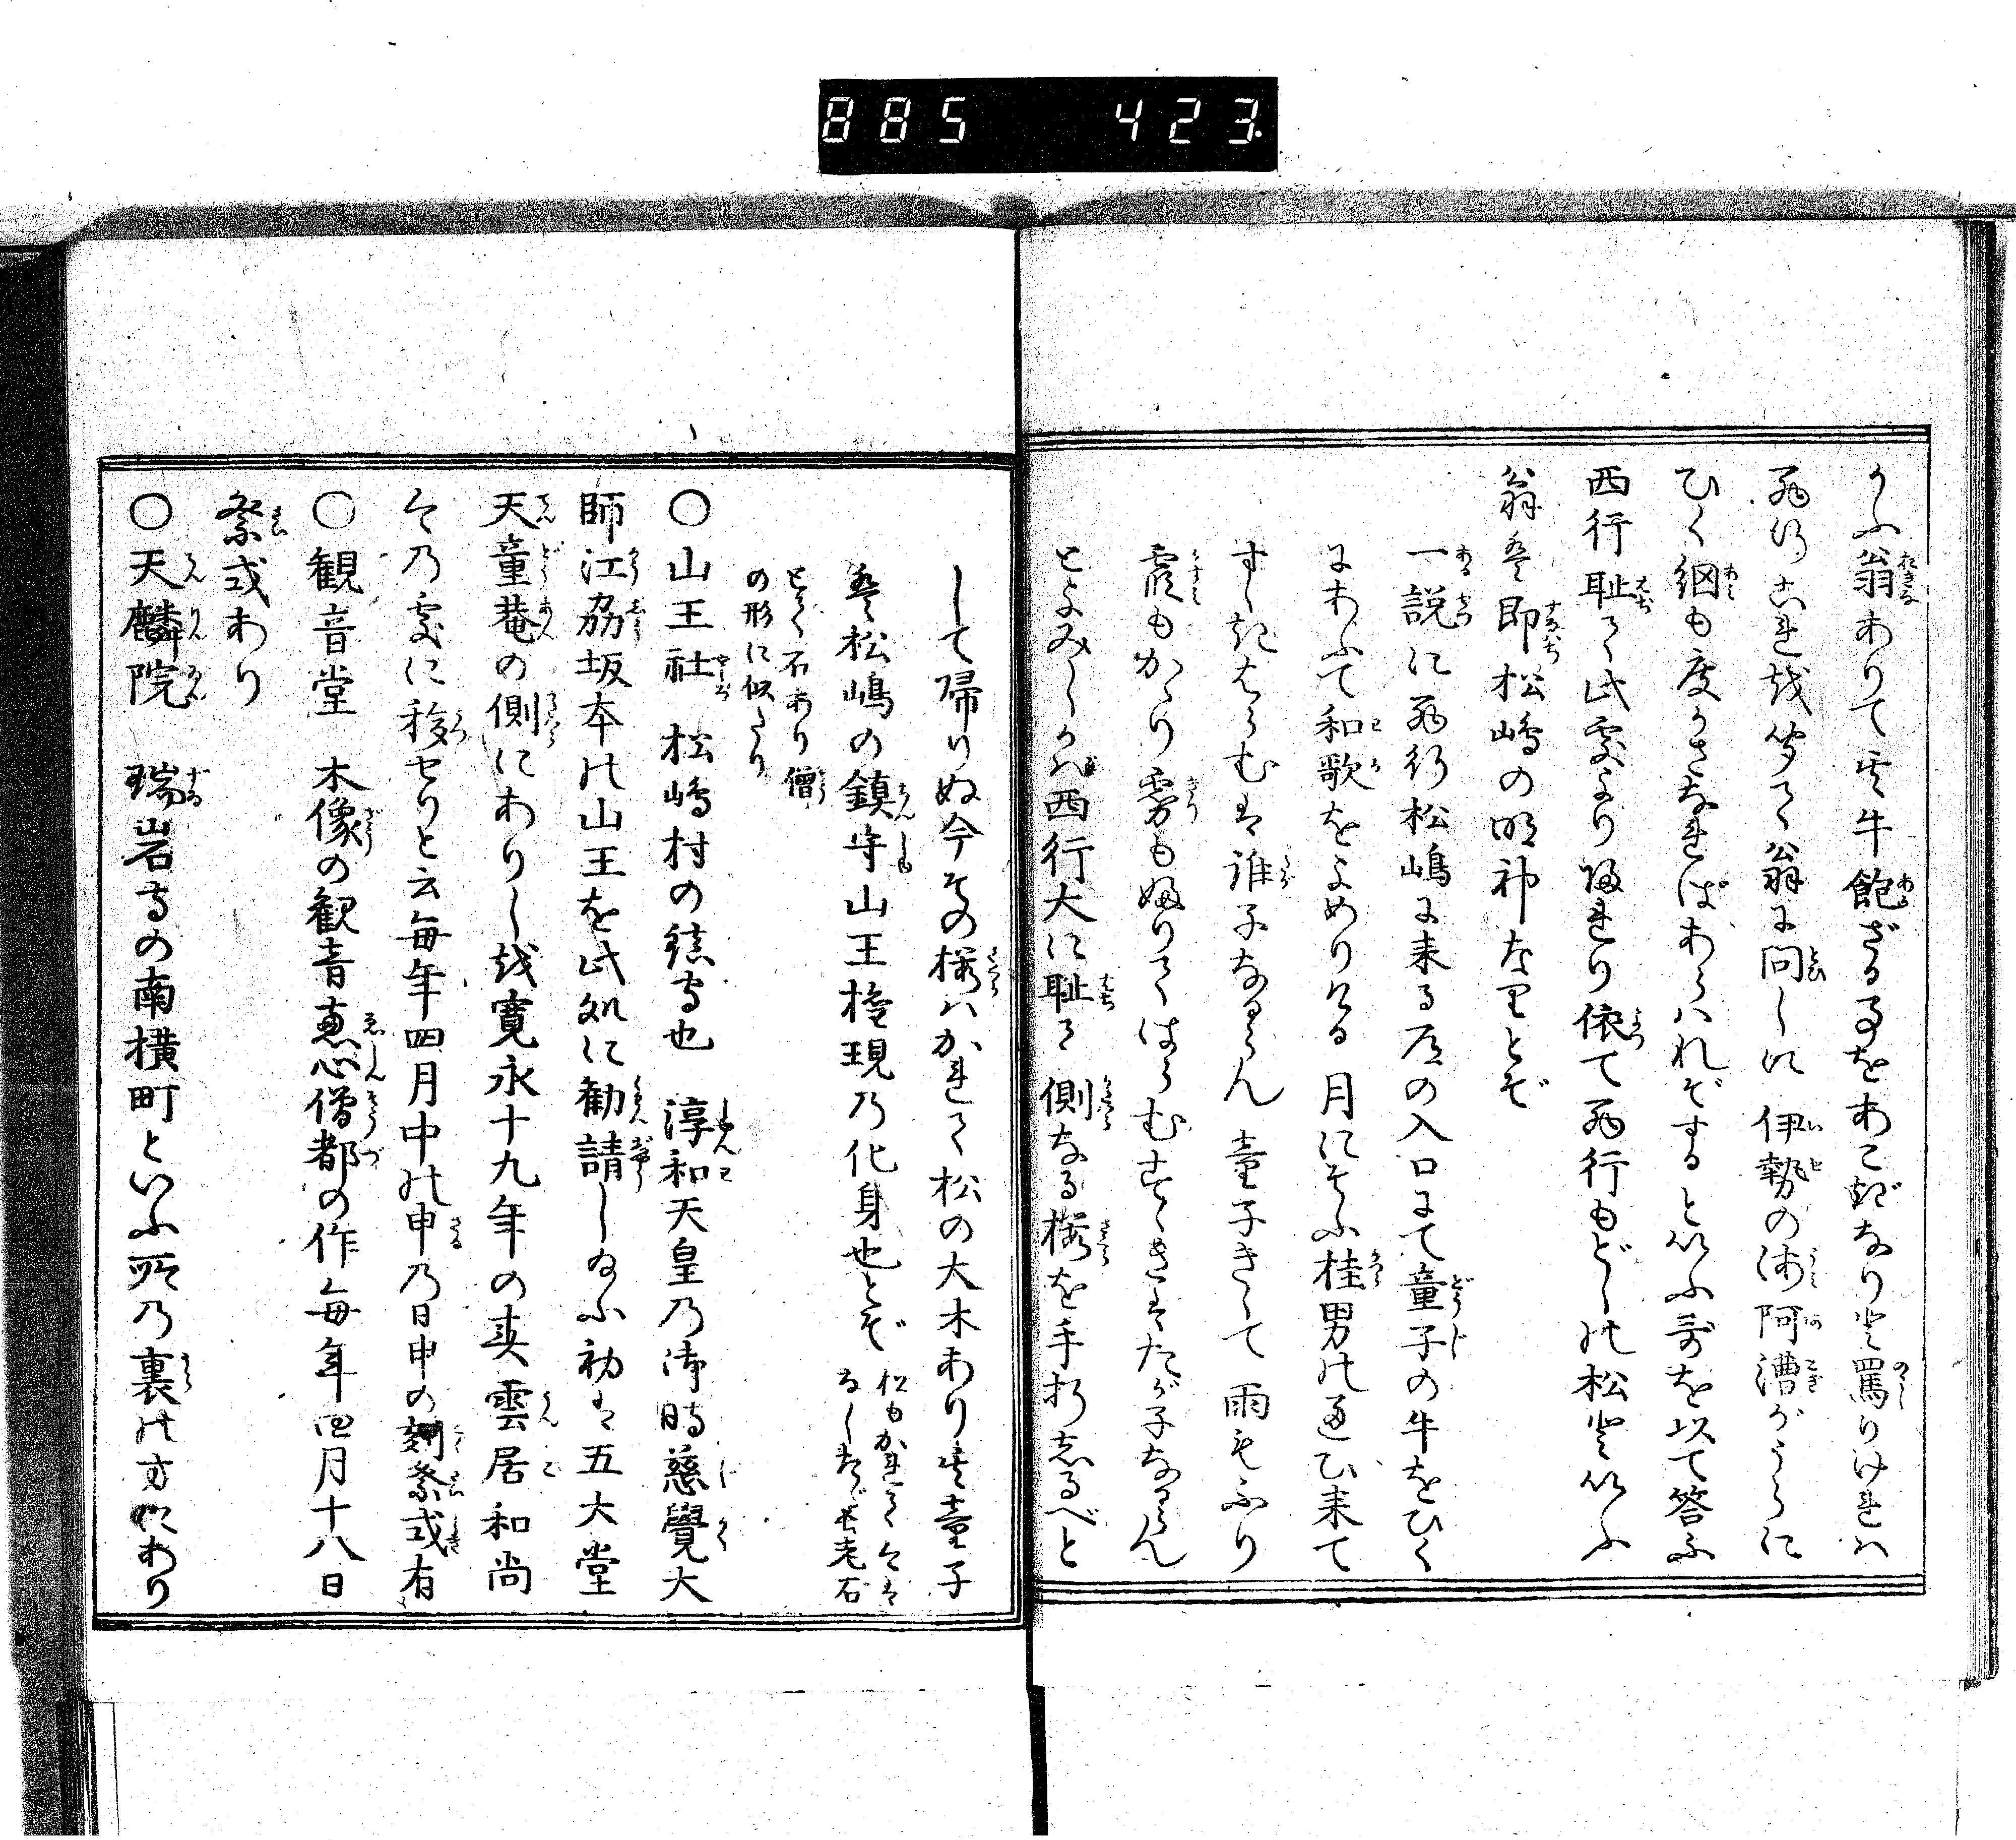 885 423
かふ翁ありて其牛飽ざる事をあこぎなりと罵りければ
西行これを聞て翁に問しに伊勢の海阿漕がうらに
ひく網も度かさなればあらはれぞするといふ哥を以て答ふ
西行耻て此処より帰れり依て西行もどしの松といふ
翁は即松嶋の明神なりとぞ
一説に西行松嶋に来る道の入口にて童子の牛をひく
にあふて和歌をよめりける月にそふ桂男の通ひ来て
すゝきはらむは誰子なるらん童子きゝて雨もふり
霞もかゝり霧も婦りてはらむすゝきはたが子なるらん
とよみしかば西行大に耻て側なる桜を手折しるべと
して帰りぬ今その桜はかれて松の大木あり其童子
は松嶋の鎮守山王権現乃化身也とぞ
松もかれて今は
るしまでに老石
とて石あり僧
の形に似たり
〇山王社 松嶋村の鎮守也 淳和天皇乃御時慈覺大
師江刕坂本の山王を此処に勧請し給ふ初は五大堂
天童菴の側にありしを寛永十九年の春雲居和尚
今乃處に移せりと云毎年四月中の申乃日申の刻祭式有
〇観音堂 木像の観音恵心僧都の作毎年四月十八日
祭式あり
〇天麟院 瑞岩寺の南横町といふ所乃裏の方にあり